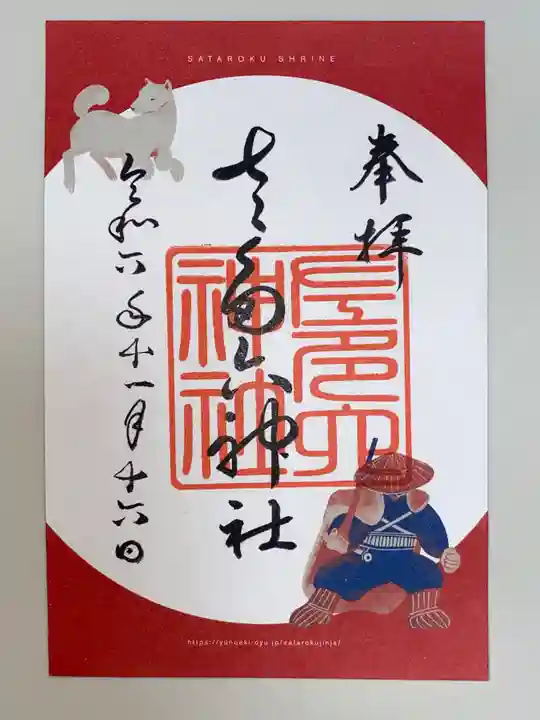 SATAROKU SHRINE
奉拝
左多六神社
左多六神社
令和六年十一月十六日
https://yunoeki.oyu.jp/satarokujinja/